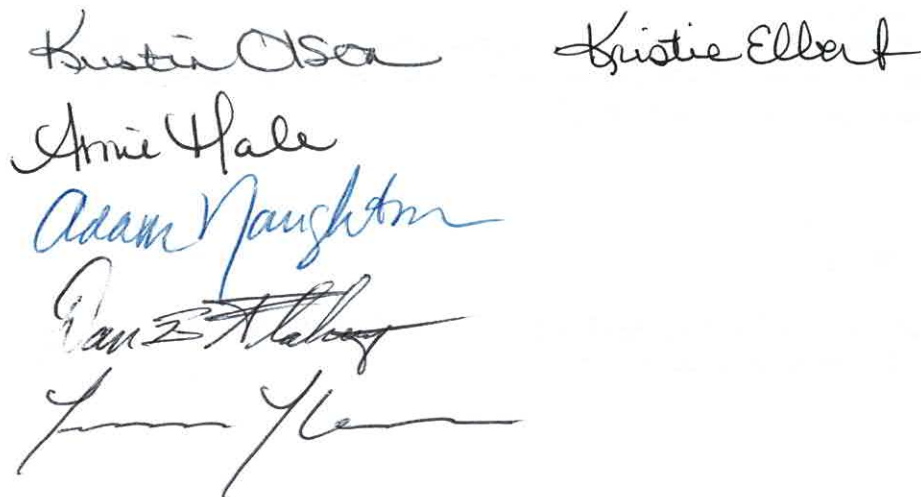 Kristin Olson Kristie Elbert
Amie Hale
Adam Naughton
Dan B Flahey